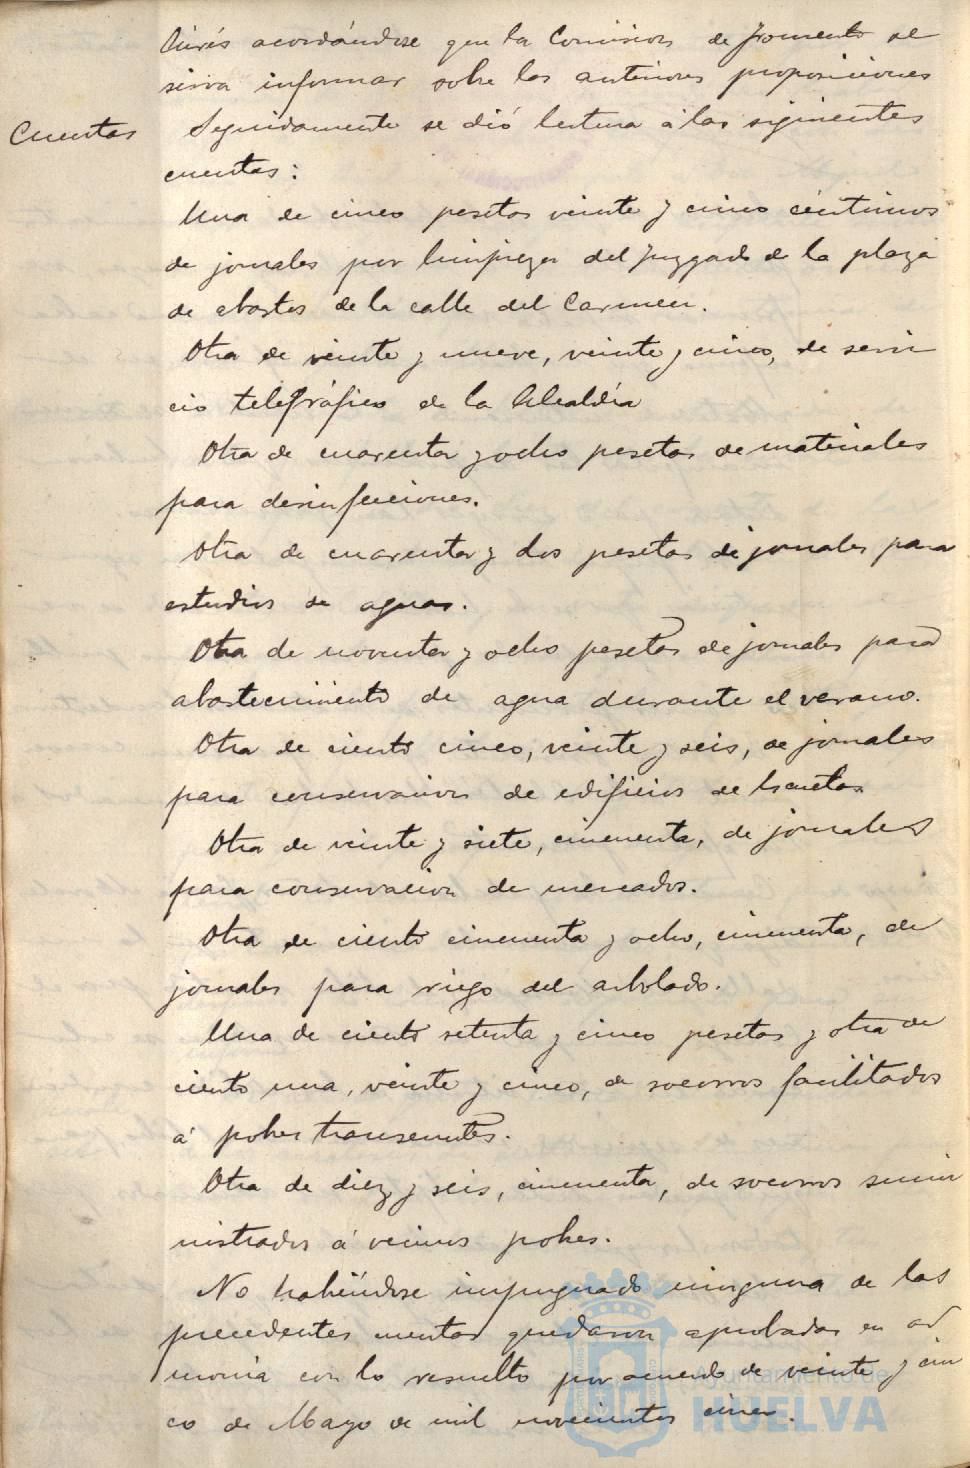 acordándose que la Comision de Fomento se
sirva informar sobre las anteriores proposiciones
Cuentas
Seguidamente se dió lectura á las siguientes
cuentas:
Una de cinco pesetas veinte y cinco céntimos
de jornales por limpieza del Juzgado de la plaza
de abastos de la calle del Carmen.
Otra de veinte y nueve, veinte y cinco, de servi
cio telefráfico de la Alcaldía
Otra de cuarenta y ocho pesetas de materiales
para desinfecciones.
Otra de cuarenta y dos pesetas de jornales para
estudios de aguas.
Otra de noventa y ocho pesetas de jornales para
abastecimiento de agua durante el verano.
Otra de ciento cinco, veinte y seis, de jornales
para conservacion de edificios de Escuelas
Otra de veinte y siete, cincuenta, de jornales
para conservacion de mercados.
Otra de ciento cincuenta y ocho, cincuenta, de
jornales para riego del arbolado.
Una de ciento setenta y cinco pesetas y otra de
ciento una, veinte y cinco, de socorros facilitados
á pobres transeuntes.
Otra de diez y seis, cincuenta, de socorros sumi
nistrados á vecinos pobres.
No habiéndose impugnado ninguna de las
precedentes cuentas quedaron aprobadas en ar
monia con lo resuelto por acuerdo de veinte y cin
co de Mayo de mil novecientos cinco.
Ayuntamiento de
HUELVA